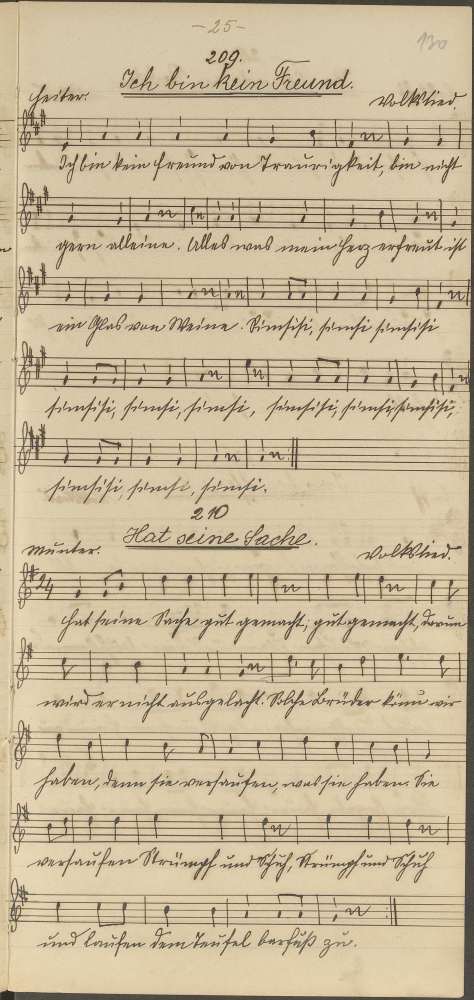 - 25 -
130
209.
Ich bin kein Freund.
Heiter. Volkslied
Ich bin kein Freund von Traurigkeit, bin nicht
gern alleine. Alles was mein Herz erfreut ist
ein Glas von Weine. Simsisi, simsi simsisi
simsisi, simsi, simsi, simsisi, simsi, simsisi,
simsisi, simsi, simsi.
210
Hat seine Sache.
Munter. Volkslied.
2/4
Hat seine Sache gut gemacht, gut gemacht, darum
wird er nicht ausgelacht. Solche Brüder könn wir
haben, denn sie versaufen, was sie haben. Sie
versaufen Strümpf und Schuh, Strümpf und Schuh
und laufen dem Teufel barfuß zu.